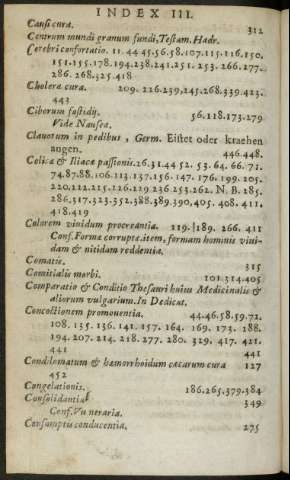 INDEX III.
Causi cura. 312
Centrum mundi granum fundi, Testam. Hadr.
Cerebri confortatio. 11.44.45.56.58.107.115.116.150.
151.155.178.194.238.241.251.253.266.277.
286.268.325.418
Cholera cura. 209.226.239.245.268.339.423.
443
Ciborum fastidij. 56.118.173.279
Vide Nausea.
Clauorum in pedibus, Germ. Eistet oder kraehen
augen. 446.448.
Colicæ & Iliacæ passionis.26.31.44.52.53.64.66.71.
74.87.88.106.113.137.156.147.176.199.205.
220.212.215.126.219.236.253.262. N.B. 285.
286.317.323.352.388.389.390.405.408.411.
418.419
Colorem viuidum procreantia. 119.189.266.411
Conf. Formæ corruptæ.item, formam hominis viui-
dam & nitidam reddentia.
Comatis. 315
Comitialis morbi. 101.314.405
Comparatio & Conditio Thesauri huius Medicinalis &
aliorum vulgarium. In Dedicat.
Concoctionem promouentia. 44.46.58.59.72.
108.135.136.141.157.164.169.173.188.
194.207.214.218.277.280.329.417.421.
441 441
Condilomatum & hæmorrhoidum cæcarum cura 127
452
Congelationis. 186.265.379.384
Consolidantia 349
Conf. Vulneraria.
Consumptis conducentia. 275